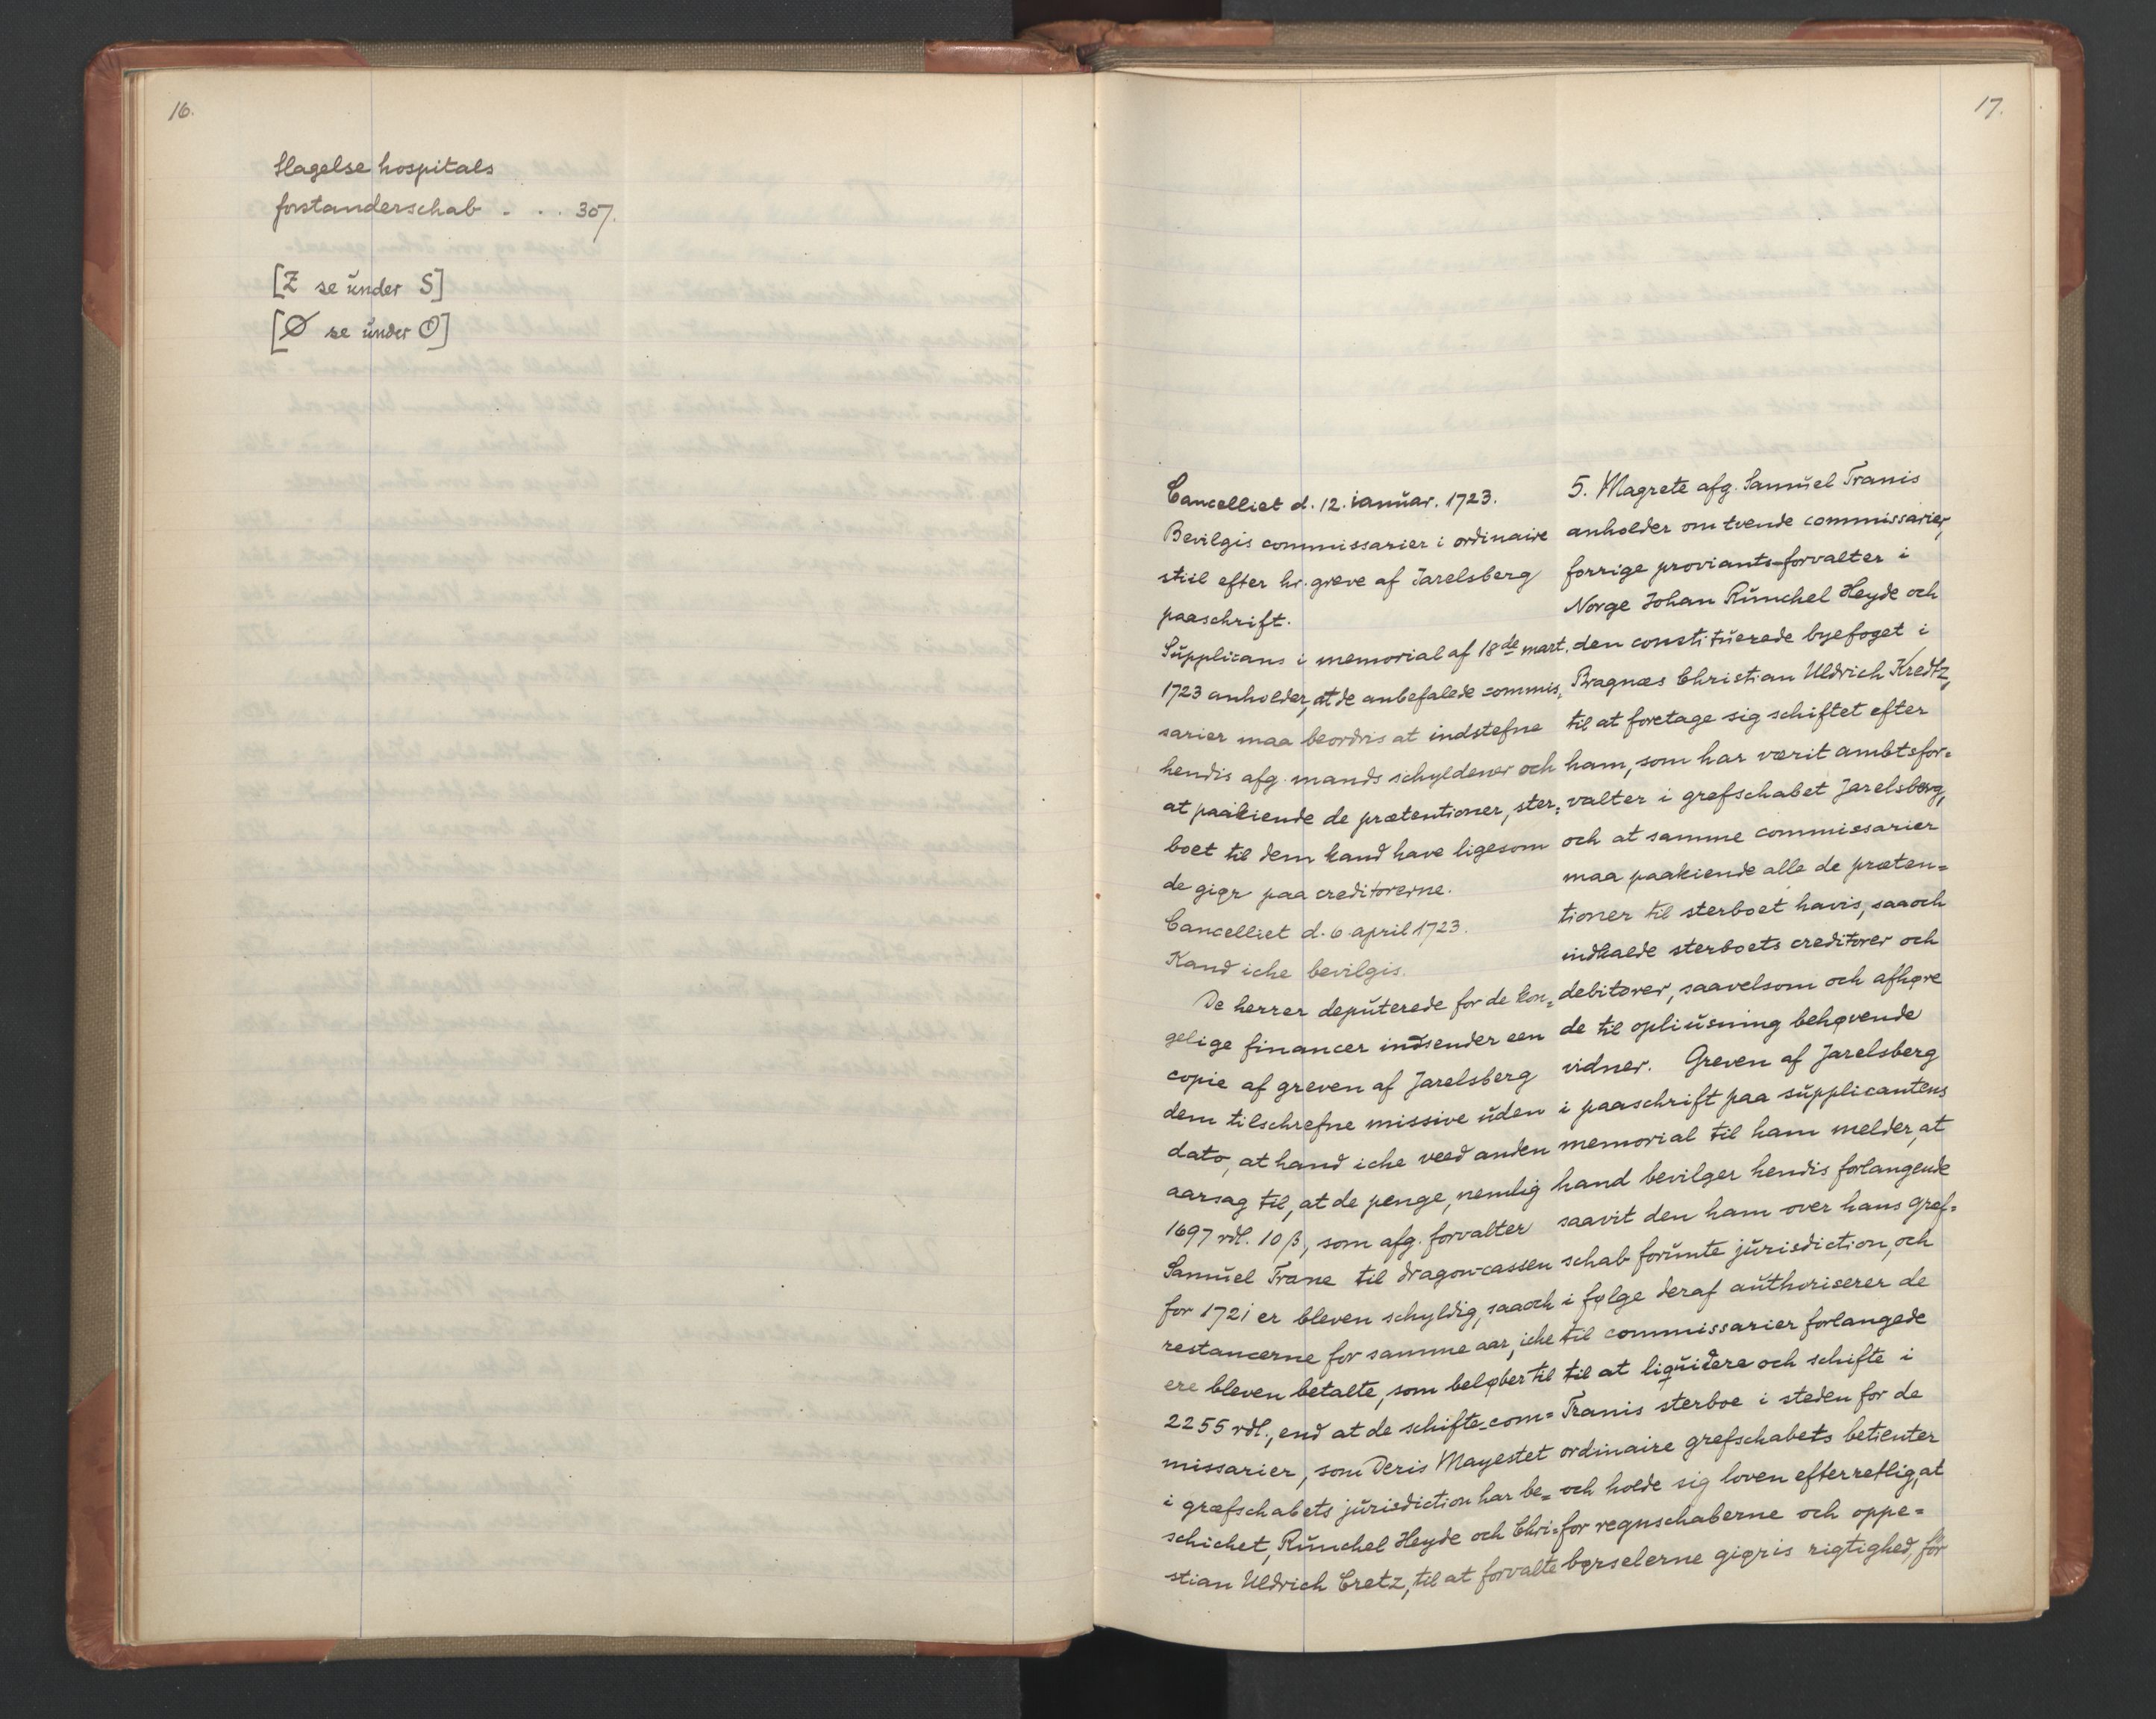 16.
Slagelse hospitals
forstanderschab . . . 307.
[Z se ŭnder S]
[Ø se ŭnder O]
17.
Cancelliet d. 12. ianŭar. 1723.
Bevilgis commissarier i ordinaire
stiil efter hr. greve af Jarelsberg
paaschrift.
Sŭpplicans i memorial af 18de mart.
1723 anholder, at de anbefalede commis=
sarier maa beordris at indstefne
hendis afg. mands schyldener och
at paakiende de prætentioner, ster=
boet til dem kand have ligesom
de giør paa creditorerne.
Cancelliet d. 6. april 1723.
Kand iche bevilgis.
De herrer depŭterede for de kon=
gelige financer indsender een
copie af greven af Jarelsberg
dem tilschrefne missive ŭden
dato, at hand iche veed anden
aarsag til, at de penge, nemlig
1697 rdl. 10 β, som afg. forvalter
Samŭel Trane til dragon-cassen
for 1721 er bleven schyldig, saaoch
restancerne for samme aar, iche
ere bleven betalte, som beløber til
2255 rdl., end at de schifte-com=
missarier, som Deris Mayestet
i græfschabets jŭrisdiction har be=
schichet, Rŭnchel Heyde och Chri=
stian Uldrich Cretz, til at forvalte
5. Magrete afg. Samŭel Tranis
anholder om tvende commissarier,
forrige proviants-forvalter i
Norge Johan Rŭnchel Heyde och
den constitŭerede byefoget i
Bragnæs Christian Uldrich Kredtz,
til at foretage sig schiftet efter
ham, som har værit ambtsfor=
valter i grefschabet Jarelsberg,
och at samme commissarier
maa paakiende alle de præten=
tioner til sterboet havis, saaoch
indkalde sterboets creditorer och
debitorer, saavelsom och afhøre
de til opliŭsning behøvende
vidner. Greven af Jarelsberg
i paaschrift paa sŭpplicantens
memorial til ham melder, at
hand bevilger hendis forlangende
saavit den ham over hans gref=
schab forŭnte jŭrisdiction, och
i følge deraf aŭthoriserer de
til commissarier forlangede
til at liqŭidere och schifte i
Tranis sterboe i steden for de
ordinaire grefschabets betienter
och holde sig loven efterretlig, at
for regnschaberne och oppe=
børselerne giøris rigtighed, for